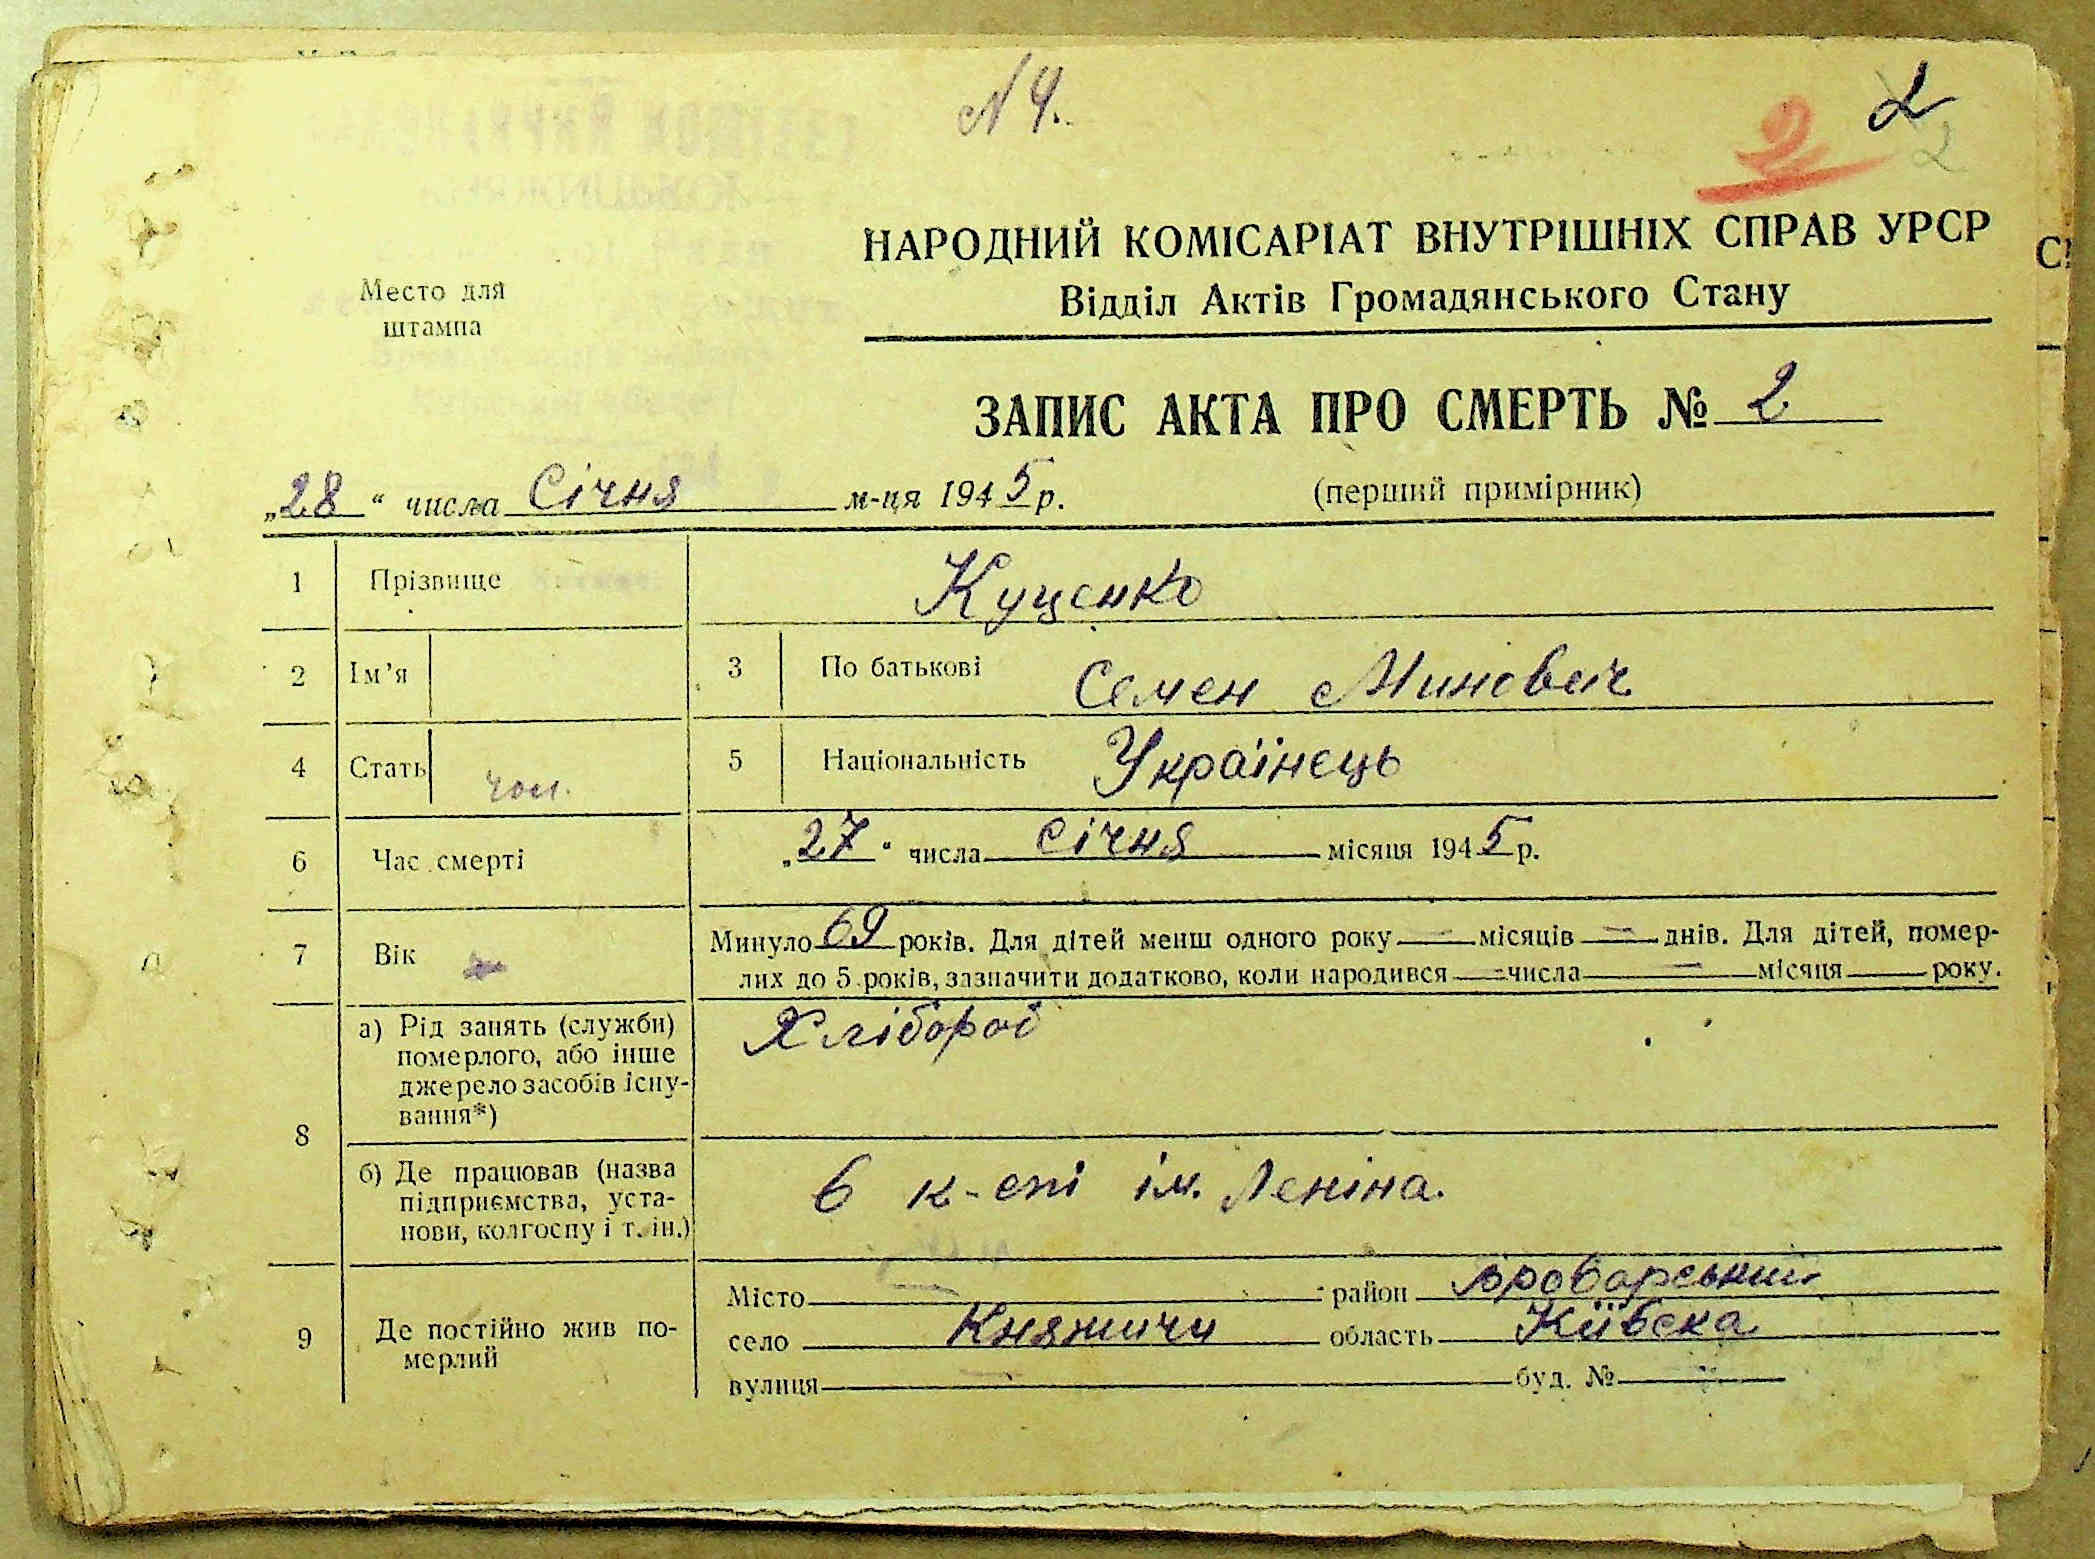 № 4.
2
2
2
НАРОДНИЙ КОМІСАРІАТ ВНУТРІШНІХ СПРАВ УРСР
Відділ Актів Громадянського Стану
Место для
штампа
ЗАПИС АКТА ПРО СМЕРТЬ № 2
„28“ числа Січня м-ця 1945 р.
(перший примірник)
1 Прізвище Куценко
2 Ім’я 3 По батькові Семен Минович
4 Стать чол. 5 Національність Українець
6 Час смерті „27“ числа Січня місяця 1945 р.
7 Вік Минуло 69 років. Для дітей менш одного року — місяців — днів. Для дітей, помер-
лих до 5 років, зазначити додатково, коли народився — числа — місяця року.
8 а) Рід занять (служби)
померлого, або інше
джерело засобів існу-
вання*)
Хлібороб
б) Де працював (назва
підприємства, уста-
нови, колгоспу і т. ін.)
В к-спі ім. Леніна.
9 Де постійно жив по-
мерлий
Місто — район Броварський
село Княжичи область Київска
вулиця — буд. №